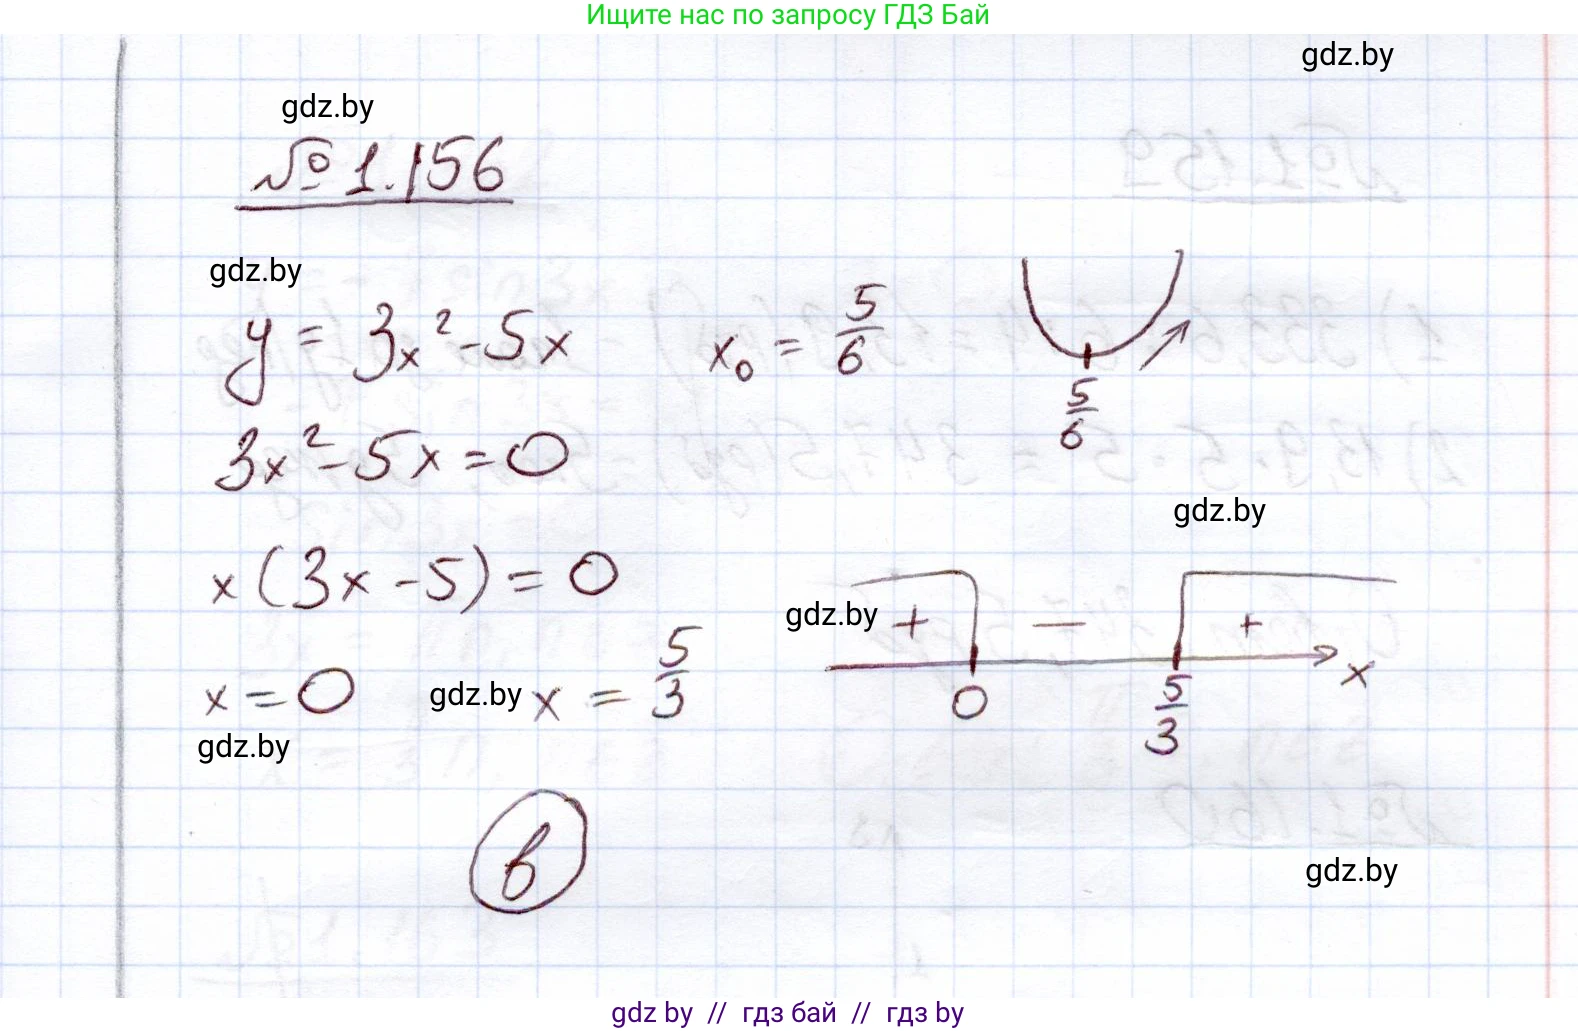 Ищите нас по запросу ГДЗ Бай
gdz.by
gdz.by
№ 1.156
gdz.by
y = 3x² - 5x x₀ = 5/6
5/6
3x² - 5x = 0
gdz.by
x(3x - 5) = 0
gdz.by + — +
x = 0 gdz.by x = 5/3
0 5/3 x
gdz.by
в
gdz.by
gdz by // гдз бай // gdz by